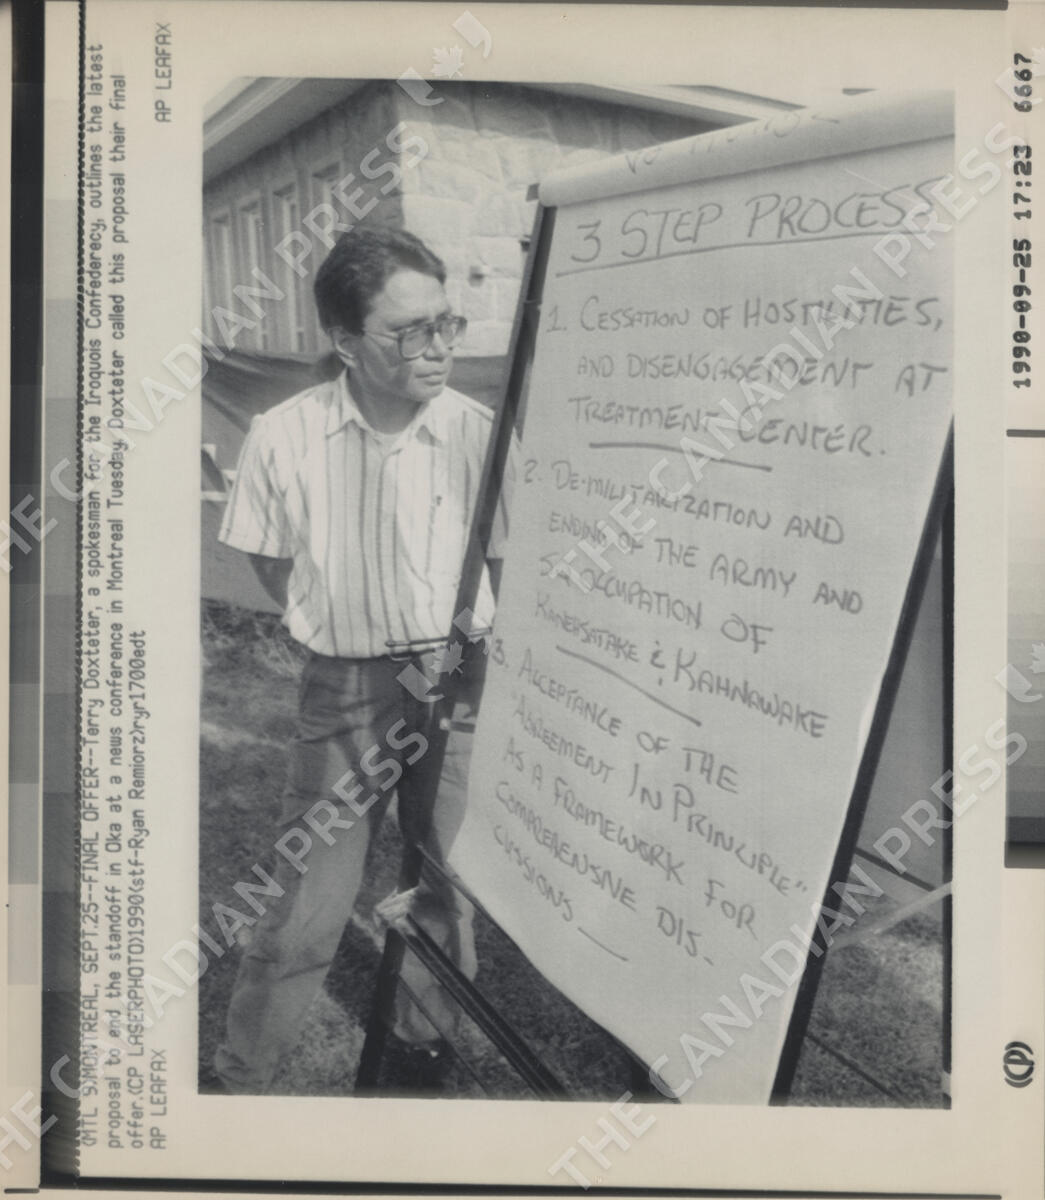 (MTL 9)MONTREAL, SEPT.25--FINAL OFFER--Terry Doxteter, a spokesman for the Iroquois Confederecy, outlines the latest
proposal to end the standoff in Oka at a news conference in Montreal Tuesday. Doxteter called this proposal their final
offer.(CP LASERPHOTO)1990(stf-Ryan Remiorz)ryr1700edt
AP LEAFAX
AP LEAFAX
3 STEP PROCESS
1. CESSATION OF HOSTILITIES,
AND DISENGAGEMENT AT
TREATMENT CENTER.
2. DE-MILITARIZATION AND
ENDING OF THE ARMY AND
SQ OCCUPATION OF
KANEHSATAKE & KAHNAWAKE
3. ACCEPTANCE OF THE
"AGREEMENT IN PRINCIPLE"
AS A FRAMEWORK FOR
COMPREHENSIVE DIS-
CUSSIONS
1990-09-25 17:23 6667
(CP)
THE CANADIAN PRESS
THE CANADIAN PRESS
THE CANADIAN PRESS
THE CANADIAN PRESS